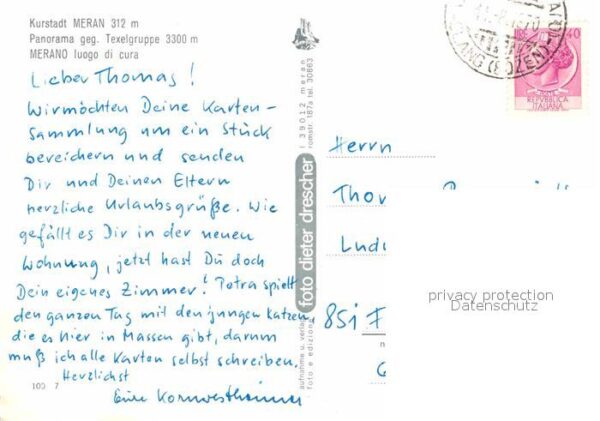 Kurstadt MERAN 312 m
Panorama geg. Texelgruppe 3300 m
MERANO luogo di cura
Lieber Thomas!
Wir möchten Deine Karten-
sammlung um ein Stück
bereichern und senden
Dir und Deinen Eltern
herzliche Urlaubsgrüße. Wie
gefällt es Dir in der neuen
Wohnung, jetzt hast Du doch
Dein eigenes Zimmer! Petra spielt
den ganzen Tag mit den jungen Katzen,
die es hier in Massen gibt, darum
muß ich alle Karten selbst schreiben.
Herzlichst
Eure Kornwestheimer
100 7
foto dieter drescher
I 39012 meran
romstr. 187a tel. 30863
aufnahme u. verlag
foto e edizione
(BOZEN)
1970
40
REPUBBLICA
ITALIANA
Herrn
Thor
Ludi
851 F
privacy protection
Datenschutz